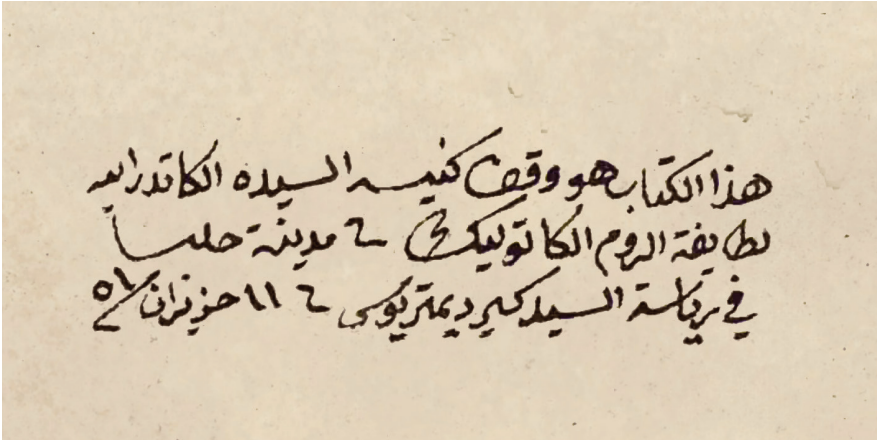 هذا الكتاب هو وقف كنيسه السيده الكاتدراليه
لطايفة الروم الكاتوليك في مدينة حلب
في رياسة السيد كير ديمتريوس في ١١ حزيران ٥١